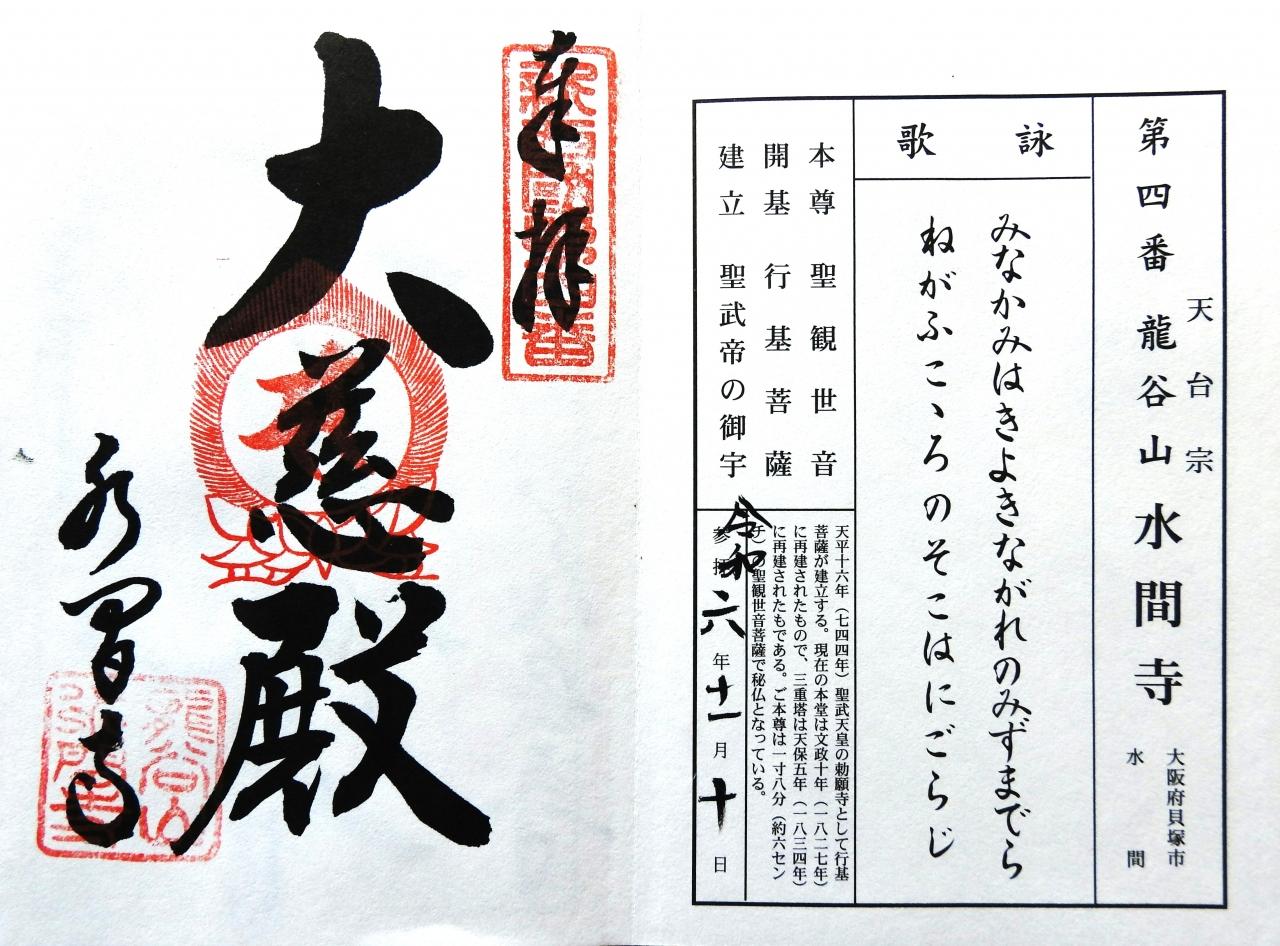 第四番 龍谷山 水間寺
天台宗
大阪府貝塚市
水間
詠歌
みなかみはきよきながれのみずまでら
ねがふこゝろのそこはにごらじ
本尊 聖観世音
開基 行基菩薩
建立 聖武帝の御宇
天平十六年(七四四年)聖武天皇の勅願寺として行基
菩薩が建立する。現在の本堂は文政十年(一八二七年)
に再建されたもので、三重塔は天保五年(一八三四年)
に再建されたもである。ご本尊は一寸八分(約六セン
チ)の聖観世音菩薩で秘仏となっている。
参拝 令和六年十一月十日
奉拝
大慈殿
水間寺
龍谷山